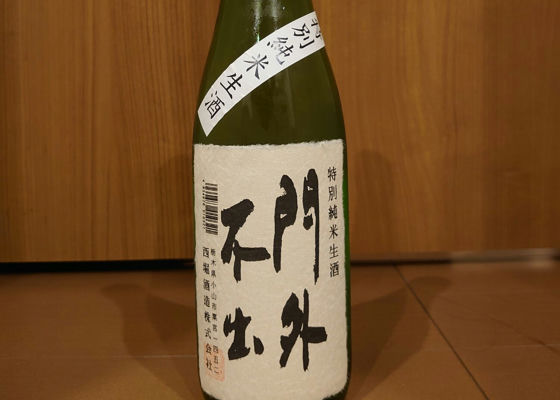 特別純米生酒
特別純米生酒
門外
不出
栃木県小山市粟宮一四五二
西堀酒造株式会社